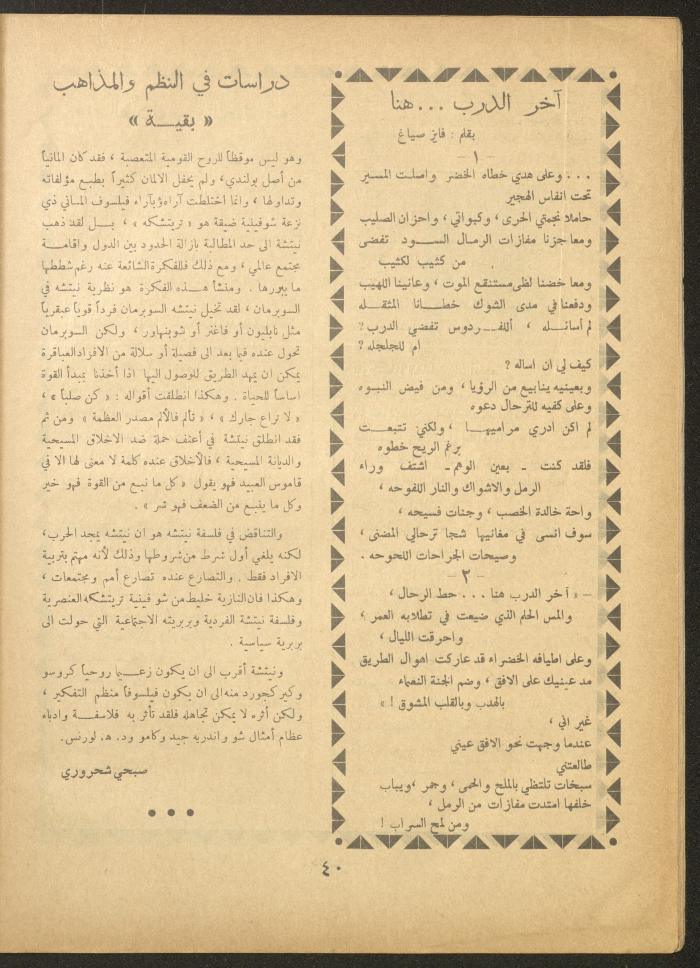 آخر الدرب ... هنا
بقلم : فايز صياغ
- ١ -
... وعلى هدي خطاه الخضر واصلت المسير
تحت انفاس الهجير
حاملا نجمتي الحرى ، وكبواتي ، واحزان الصليب
ومعا جزنا مفازات الرمال السود تفضى
من كثيب لكثيب
ومعا خضنا لظى مستنقع الموت ، وعانينا اللهيب
ودفعنا في مدى الشوك خطانا المثقله
لم أسائله ، أللفردوس تفضي الدرب ؟
ام للجلجله ؟
كيف لي ان اساله ؟
وبعينيه ينابيع من الرؤيا ، ومن فيض النبوه
وعلى كفيه للترحال دعوه
لم اكن ادري مراميها ، ولكني تتبعت
برغم الريح خطوه
فلقد كنت - بعين الوهم - اشتف وراء
الرمل والاشواك والنار اللفوحه ،
واحة خالدة الخصب ، وجنات فسيحه ،
سوف انسى في مغانيها شجا ترحالي المضنى ،
وصيحات الجراحات اللحوحه .
- ٢ -
- « آخر الدرب هنا ... حط الرحال ،
والمس الحلم الذي ضيعت في تطلابه العمر ،
واحرقت الليال ،
وعلى اطيافه الخضراء قد عاركت اهوال الطريق
مد عينيك على الافق ، وضم الجنة النعماء
بالهدب وبالقلب المشوق ! »
غير اني ،
عندما وجهت نحو الافق عيني
طالعتني
سبخات تلتظي بالملح والحمى ، وجمر ، ويباب
خلفها امتدت مفازات من الرمل ،
ومن لمح السراب !
دراسات في النظم والمذاهب
« بقيـة »
وهو ليس موقظاً للروح القومية المتعصبة ، فقد كان المانياً
من أصل بولندي، ولم يحفل الالمان كثيراً بطبع مؤلفاته
وتداولها ، وانما اختلطت آراءه بآراء فيلسوف الماني ذي
نزعة شوفينية ضيقة هو « تريتشكه » ، بل لقد ذهب
نيتشة الى حد المطالبة بازالة الحدود بين الدول واقامة
مجتمع عالمي ، ومع ذلك فللفكرة الشائعة عنه رغم شططها
ما يبررها . ومنشأ هذه الفكرة هو نظرية نيتشه في
السوبرمان ، لقد تخيل نيتشه السوبرمان فرداً قوياً عبقرياً
مثل نابليون أو فاغنر أو شوبنهاور ، ولكن السوبرمان
تحول عنده فيما بعد الى فصيلة أو سلالة من الافراد العباقرة
يمكن ان يمهد الطريق للوصول اليها اذا أخذنا بمبدأ القوة
اساساً للحياة . وهكذا انطلقت أقواله : « كن صلباً » ،
« لا تراع جارك » ، « تألم فالألم مصدر العظمة » ومن ثم
فقد انطلق نيتشة في أعنف حملة ضد الاخلاق المسيحية
والديانة المسيحية ، فالأخلاق عنده كلمة لا معنى لها الا في
قاموس العبيد فهو يقول « كل ما نبع من القوة فهو خير
وكل ما ينبع من الضعف فهو شر » .
والتناقض في فلسفة نيتشه هو ان نيتشه يمجد الحرب،
لكنه يلغي أول شرط من شروطها وذلك لأنه مهتم بتربية
الافراد فقط . والتصارع عنده تصارع أمم ومجتمعات ،
وهكذا فان النازية خليط من شوفينية تريتشكه العنصرية
وفلسفة نيتشة الفردية وبربريته الاجتماعية التي حولت الى
بربرية سياسية .
ونيتشة أقرب الى ان يكون زعيما روحياً كروسو
وكيركجورد منه الى ان يكون فيلسوفاً منظم التفكير ،
ولكن أثره لا يمكن تجاهله فلقد تأثر به فلاسفة وادباء
عظام أمثال شو واندريه جيد وكامو ود. ه. لورنس.
صبحي شحروري
٤٠